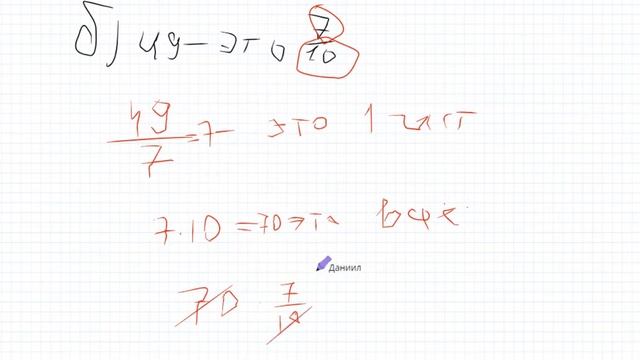 б) 49 - это 7/10
49/7 = 7 - это 1 част
7 · 10 = 70 это все
Даниил
70 · 7/10